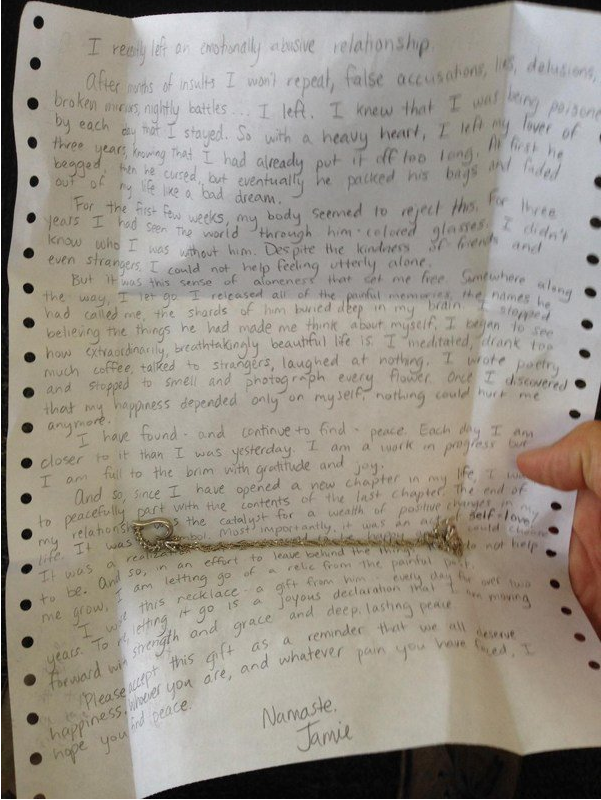 I recently left an emotionally abusive relationship.
After months of insults I won't repeat, false accusations, lies, delusions,
broken mirrors, nightly battles... I left. I knew that I was being poisoned
by each day that I stayed. So with a heavy heart, I left my lover of
three years, knowing that I had already put it off too long. At first he
begged, then he cursed, but eventually he packed his bags and faded
out of my life like a bad dream.
For the first few weeks, my body seemed to reject this. For three
years I had seen the world through him-colored glasses. I didn't
know who I was without him. Despite the kindness of friends and
even strangers, I could not help feeling utterly alone.
But it was this sense of aloneness that set me free. Somewhere along
the way, I let go. I released all of the painful memories, the names he
had called me, the shards of him buried deep in my brain. I stopped
believing the things he had made me think about myself. I began to see
how extraordinarily, breathtakingly beautiful life is. I meditated, drank too
much coffee, talked to strangers, laughed at nothing. I wrote poetry
and stopped to smell and photograph every flower. Once I discovered
that my happiness depended only on myself, nothing could hurt me
anymore.
I have found - and continue to find - peace. Each day I am
closer to it than I was yesterday. I am a work in progress but
I am full to the brim with gratitude and joy.
And so, since I have opened a new chapter in my life, I
to peacefully part with the contents of the last chapter. The end of
my relationship the catalyst for a wealth of positive changes in my
life. It was most importantly, it was an act self-love
It was a could choose
to be. And so, in an effort to leave behind the things do not help
me grow, I am letting go of a relic from the painful past.
I this necklace - a gift from him - every day for over two
years. To me, letting it go is a joyous declaration that I am moving
forward with strength and grace and deep, lasting peace.
Please accept this gift as a reminder that we all deserve
happiness. Whoever you are, and whatever pain you have faced, I
hope you find peace.
Namaste.
Jamie